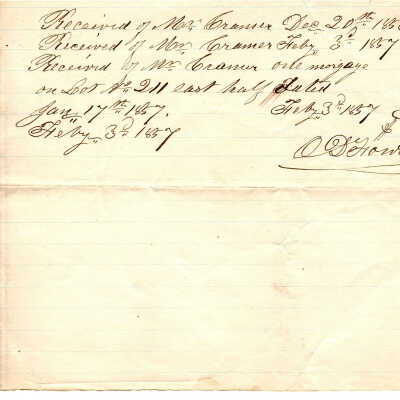 Received of Mr. Cramer Dec 20th 185
Received of Mr. Cramer Feby. 3d 1857
Received of Mr. Cramer one morgage
on Lot No 211 east half Dated
Jany 17th 1857. Feby. 3d 1857
Feby. 3d 1857